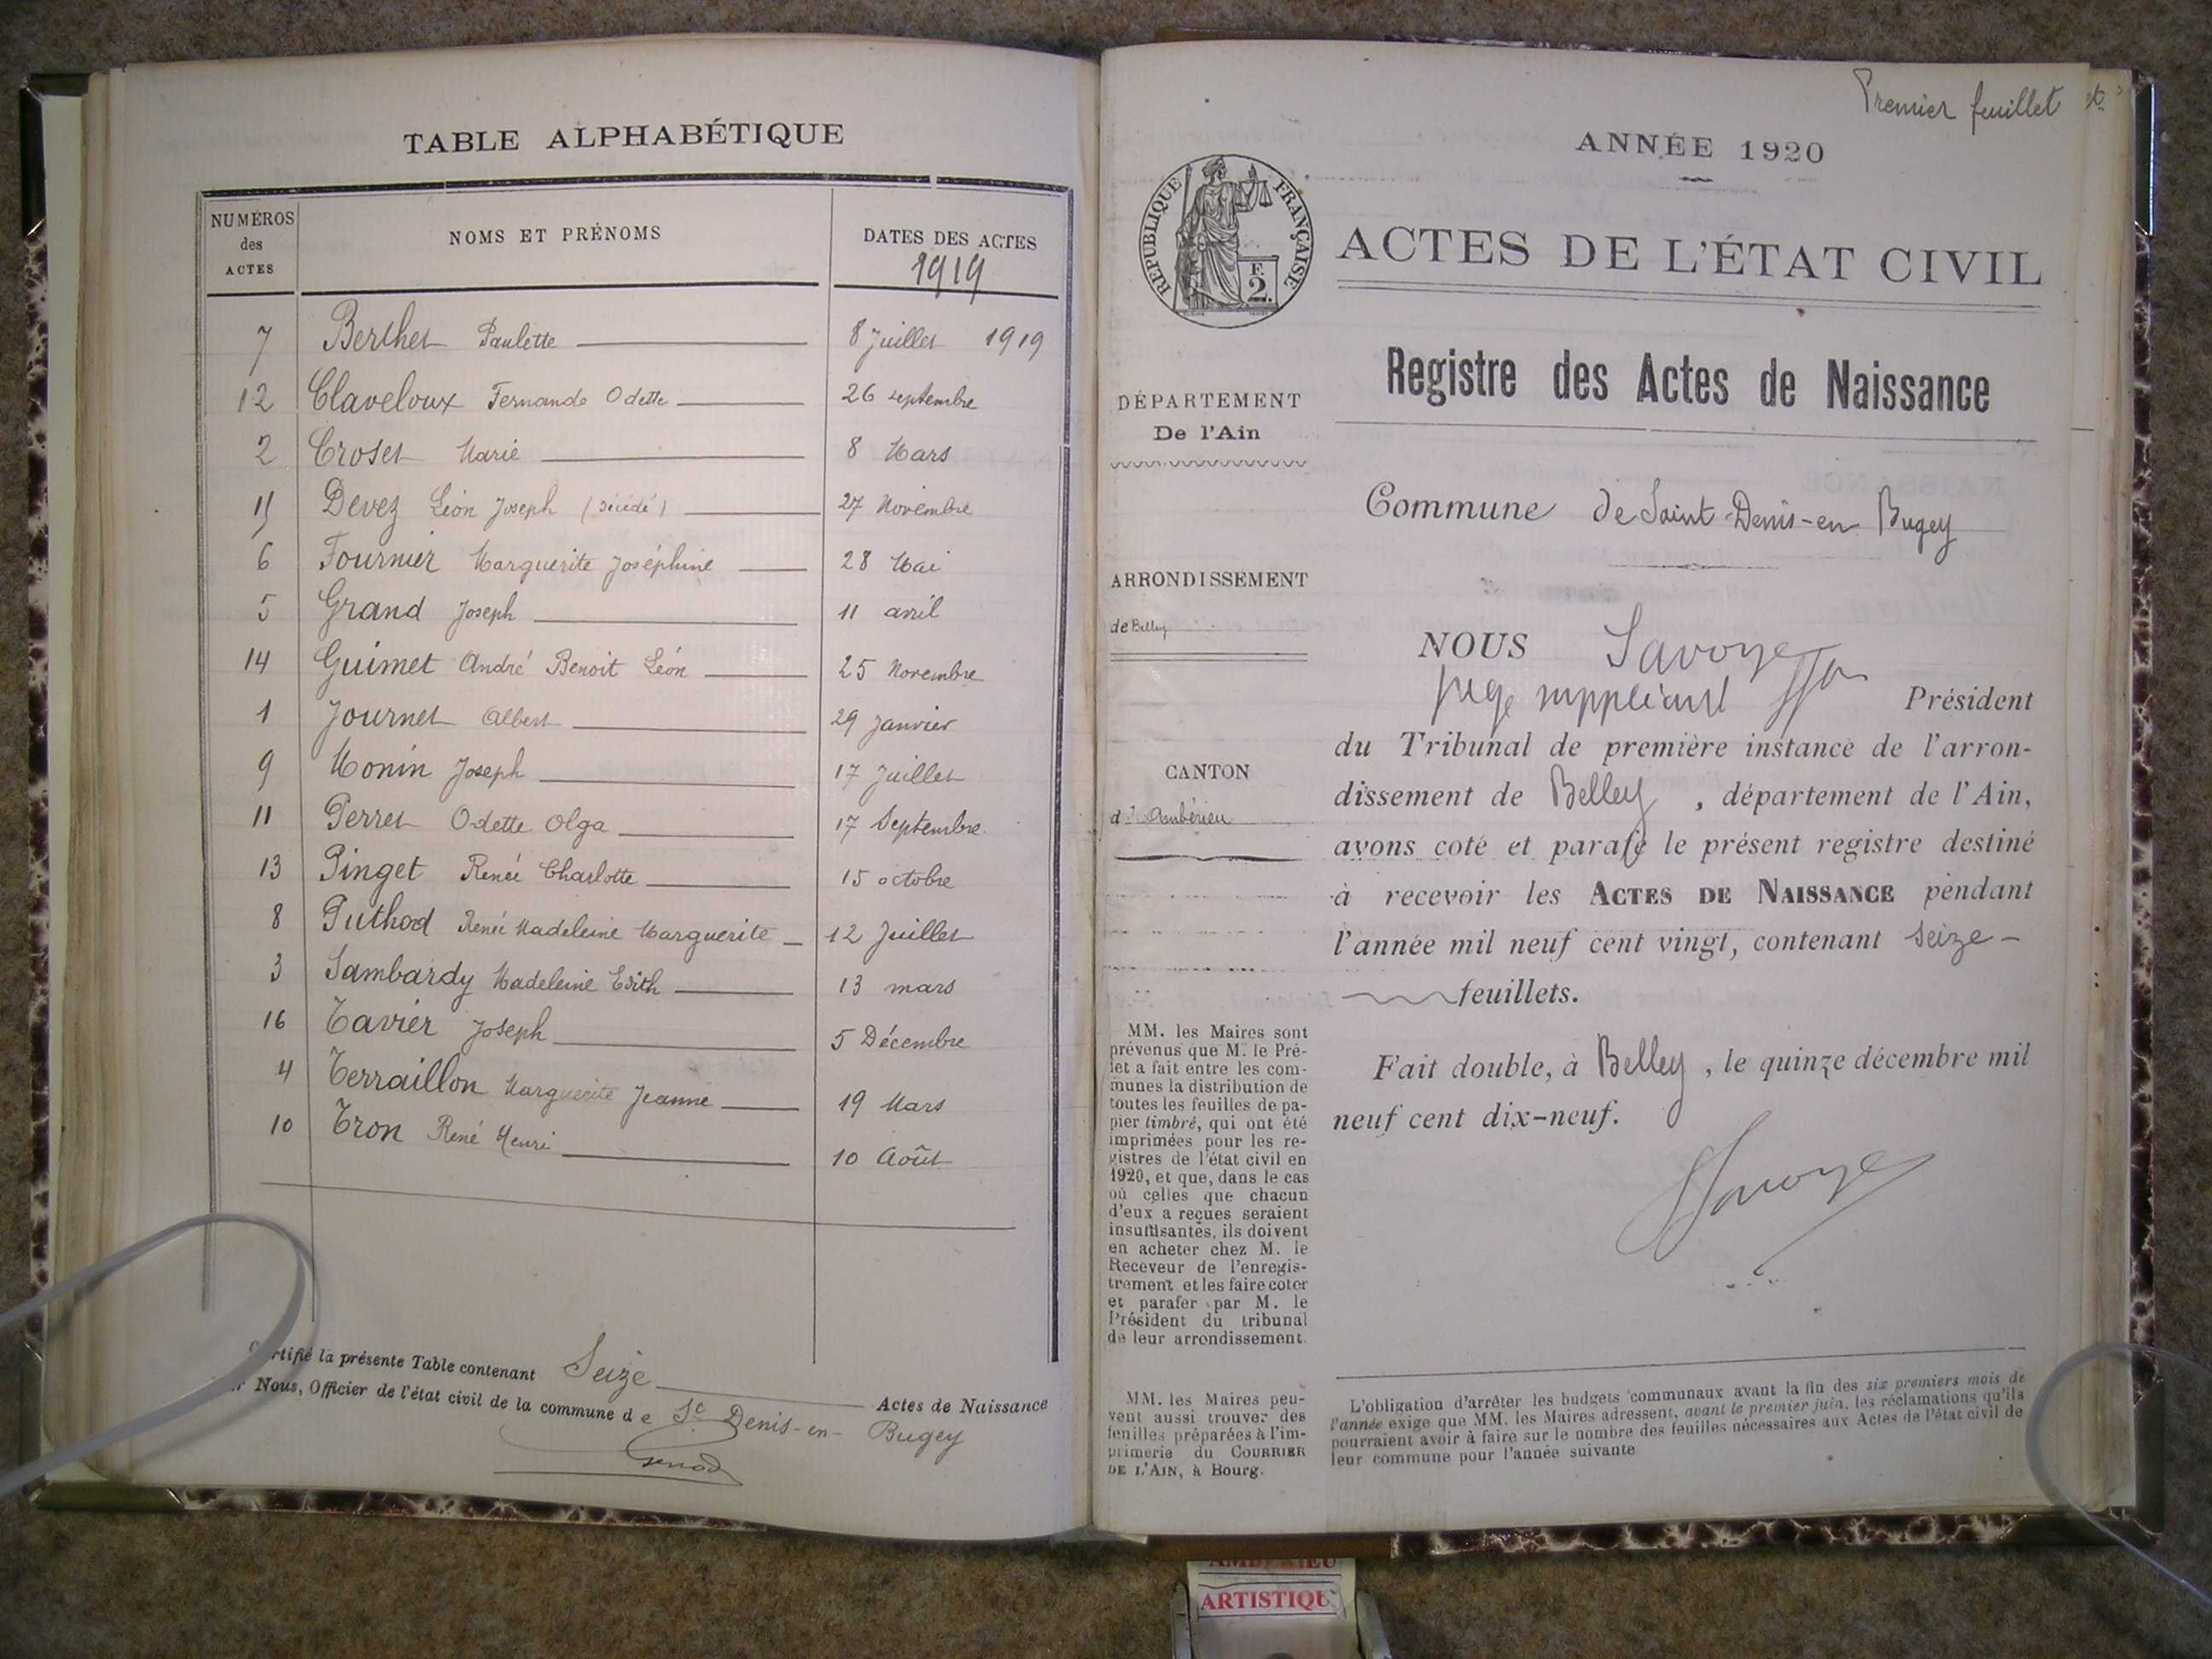 TABLE ALPHABÉTIQUE
NUMÉROS des ACTES
NOMS ET PRÉNOMS
DATES DES ACTES
1919
7 Berthet Paulette 8 Juillet 1919
12 Claveloux Fernande Odette 26 septembre
2 Croset Marie 8 Mars
15 Devez Léon Joseph (décédé) 27 Novembre
6 Fournier Marguerite Joséphine 28 Mai
5 Grand Joseph 11 avril
14 Guimet André Benoit Léon 25 Novembre
1 Journet Albert 29 Janvier
9 Monin Joseph 17 Juillet
11 Perret Odette Olga 17 Septembre
13 Pinget Renée Charlotte 15 octobre
8 Puthod Renée Madeleine Marguerite 12 Juillet
3 Sambardy Madeleine Edith 13 mars
16 Tavier Joseph 5 Décembre
4 Terraillon Marguerite Jeanne 19 Mars
10 Tron René Henri 10 Août
Certifié la présente Table contenant Seize Actes de Naissance
Nous, Officier de l'état civil de la commune de St Denis-en-Bugey
Premier feuillet
ANNÉE 1920
RÉPUBLIQUE FRANÇAISE
F. 2
ACTES DE L'ÉTAT CIVIL
Registre des Actes de Naissance
DÉPARTEMENT
De l'Ain
Commune de Saint-Denis-en Bugey
ARRONDISSEMENT
de Belley
CANTON
d'Ambérieu
NOUS Savoye
juge suppléant Président
du Tribunal de première instance de l'arron-
dissement de Belley, département de l'Ain,
avons coté et parafé le présent registre destiné
à recevoir les ACTES DE NAISSANCE pendant
l'année mil neuf cent vingt, contenant seize -
feuillets.
Fait double, à Belley, le quinze décembre mil
neuf cent dix-neuf.
Savoye
MM. les Maires sont
prévenus que M. le Pré-
fet a fait entre les com-
munes la distribution de
toutes les feuilles de pa-
pier timbré, qui ont été
imprimées pour les re-
gistres de l'état civil en
1920, et que, dans le cas
où celles que chacun
d'eux a reçues seraient
insuffisantes, ils doivent
en acheter chez M. le
Receveur de l'enregis-
trement et les faire coter
et parafer par M. le
Président du tribunal
de leur arrondissement.
MM. les Maires peu-
vent aussi trouver des
feuilles préparées à l'im-
primerie du COURRIER
DE L'AIN, à Bourg.
L'obligation d'arrêter les budgets communaux avant la fin des six premiers mois de
l'année exige que MM. les Maires adressent, avant le premier juin, les réclamations qu'ils
pourraient avoir à faire sur le nombre des feuilles nécessaires aux Actes de l'état civil de
leur commune pour l'année suivante
ARTISTIQU